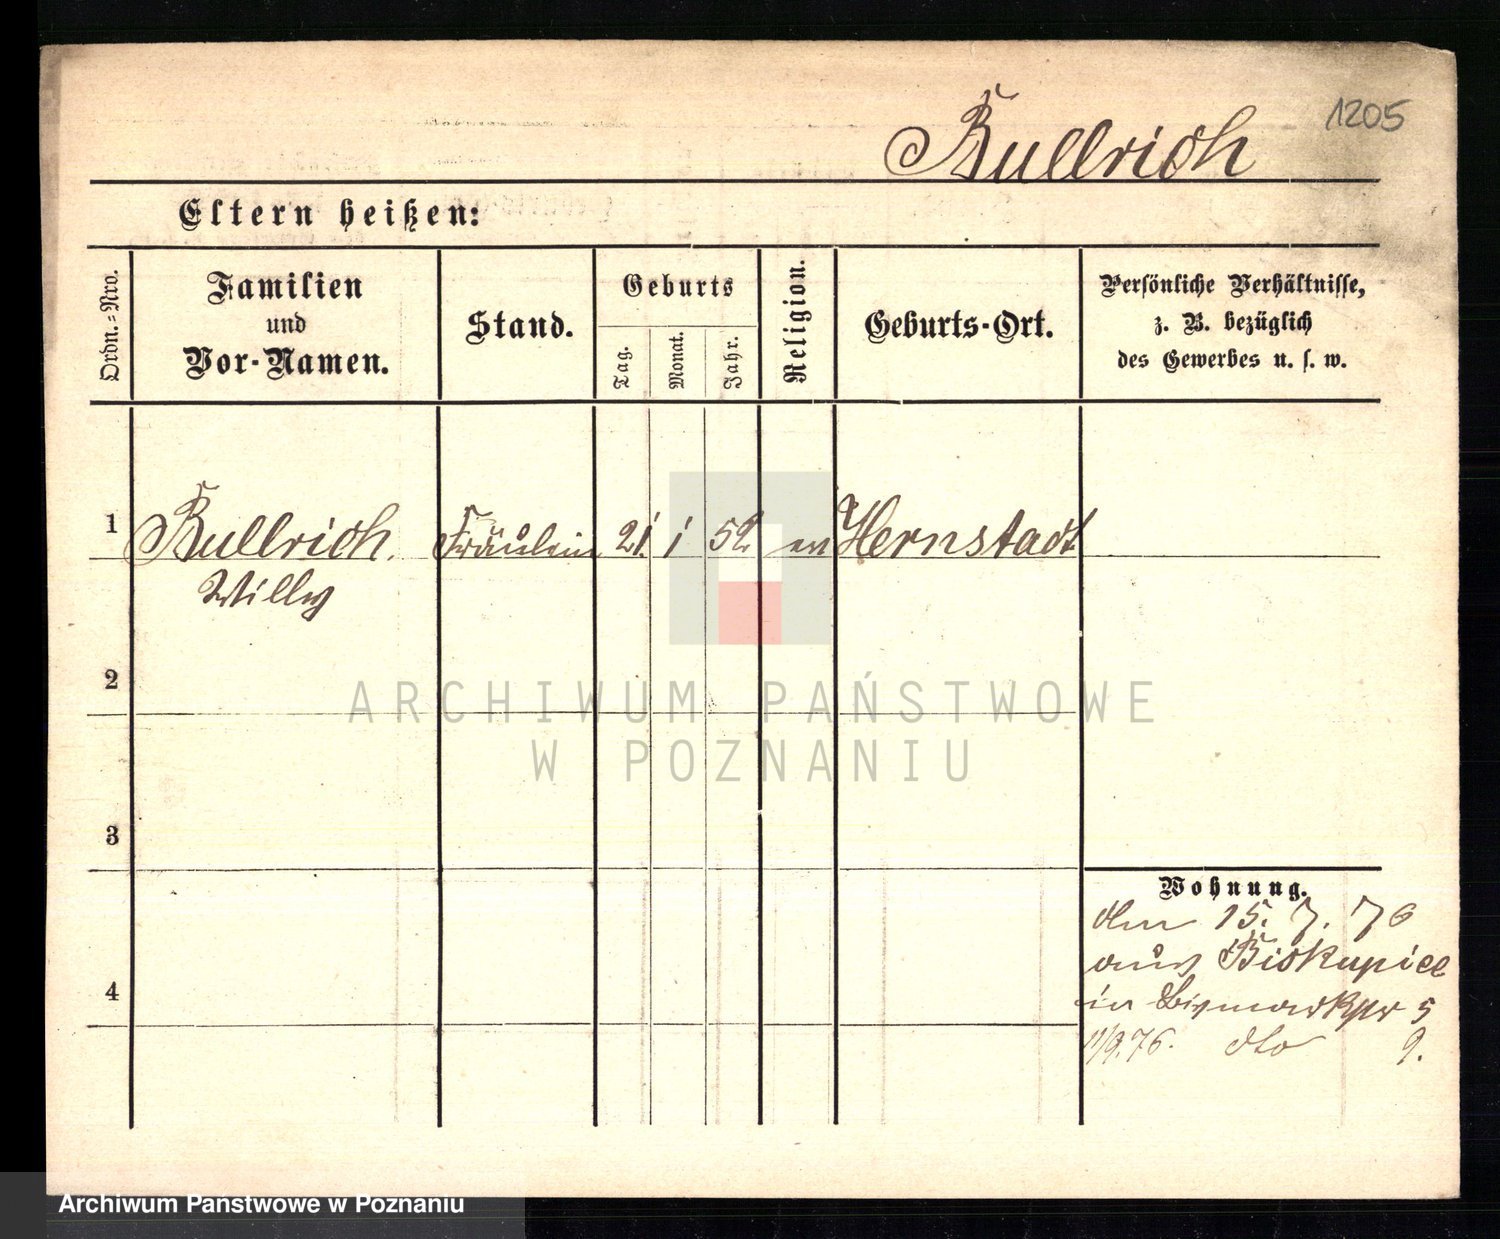 1205
Bullrich
Eltern heißen:
Ordn.=Nro.
Familien
und
Vor-Namen.
Stand.
Geburts
Tag.
Monat.
Jahr.
Religion.
Geburts-Ort.
Persönliche Verhältnisse,
z. B. bezüglich
des Gewerbes u. s. w.
1 Bullrich. Fräulein 21. 1 52 ev Hernstadt
Willy
2
ARCHIWUM PAŃSTWOWE
W POZNANIU
3
Wohnung.
den 15. 7. 76
aus Biskupice
4
in Bismarkstr 5
11/9. 76. dto 9.
Archiwum Państwowe w Poznaniu